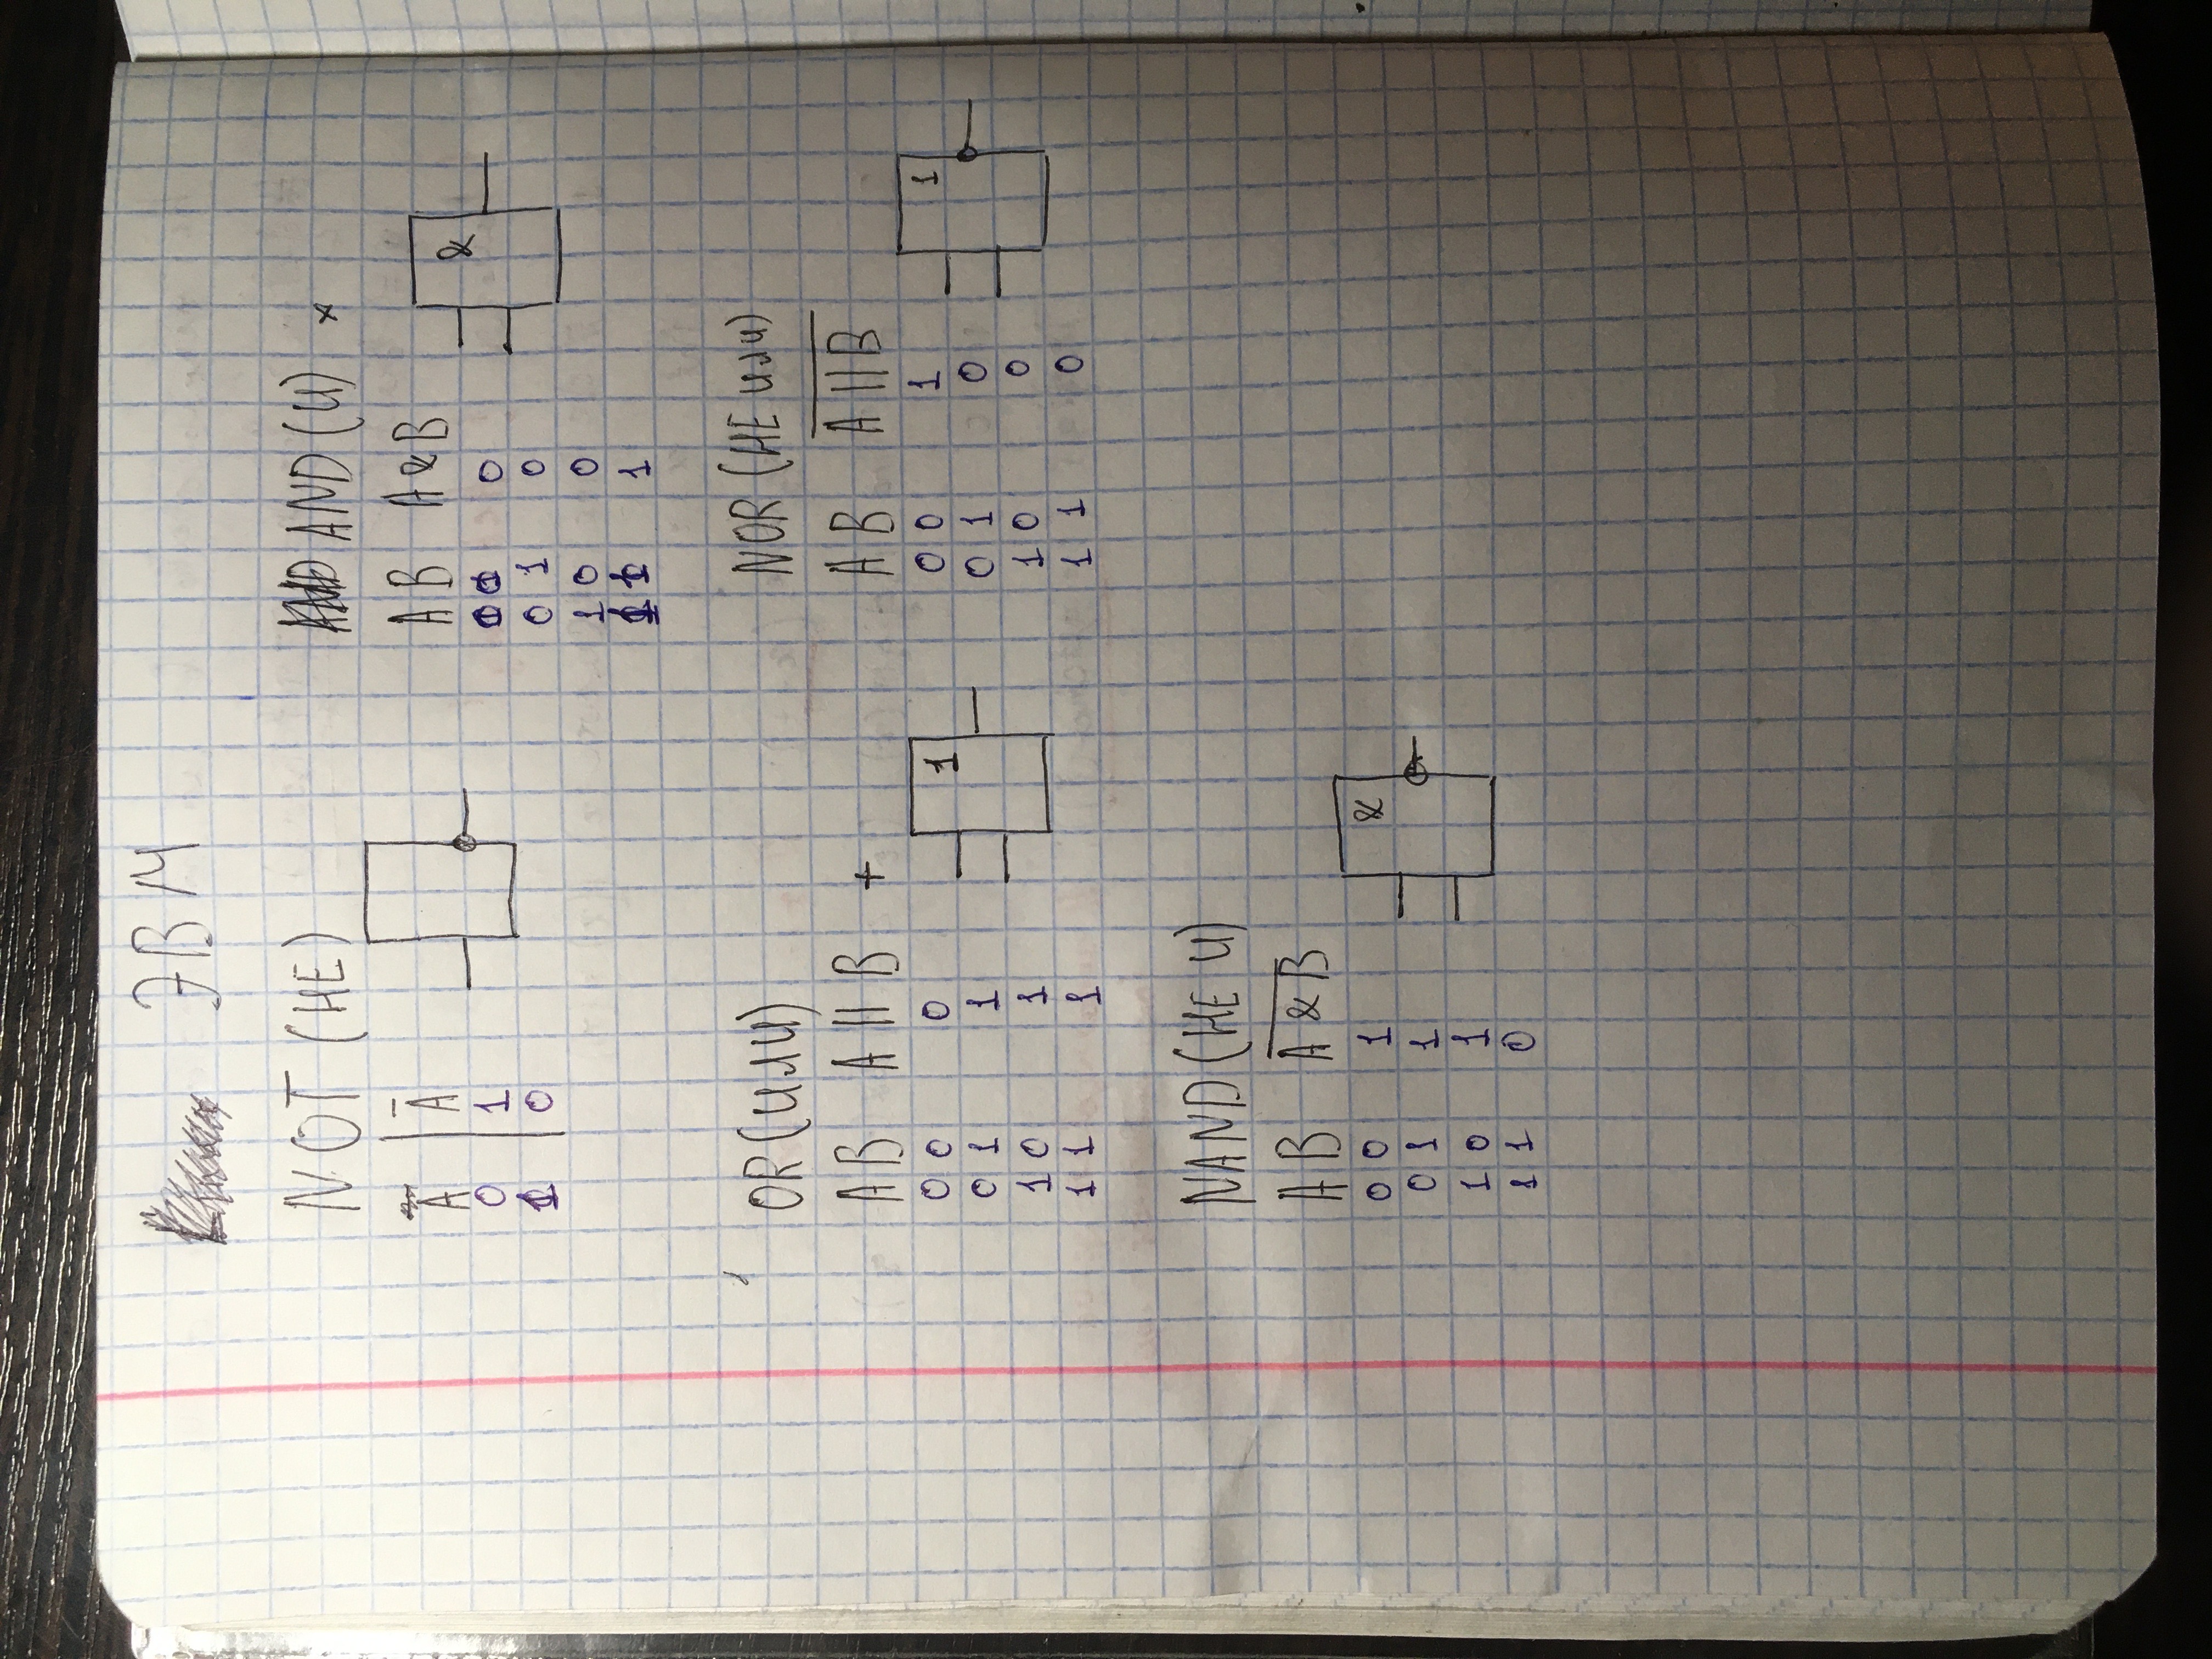 ЭВМ
NOT (НЕ)
A | Ā
0 | 1
1 | 0
AND (И) ×
A B A & B
&
0 0 0
0 1 0
1 0 0
1 1 1
OR (ИЛИ)
A B A || B +
1
0 0 0
0 1 1
1 0 1
1 1 1
NOR (НЕ ИЛИ)
A B A̅ ̅|̅|̅ ̅B̅
1
0 0 1
0 1 0
1 0 0
1 1 0
NAND (НЕ И)
A B A̅ ̅&̅ ̅B̅
&
0 0 1
0 1 1
1 0 1
1 1 0